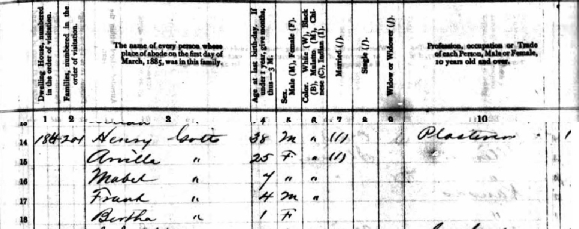 Dwelling House, numbered in the order of visitation.
Families, numbered in the order of visitation.
The name of every person whose place of abode on the first day of March, 1885, was in this family.
Age at last birthday. If under 1 year, give months, thus—3 M.
Sex. Male (M), Female (F).
Color. White (W), Black (B), Mulatto (M), Chinese (C), Indian (I).
Married (/).
Single (/).
Widow or Widower (/).
Profession, occupation or Trade of each Person, Male or Female, 10 years old and over.
1 2 3 4 5 6 7 8 9 10
14 184 201 Henry 38 M " (1) Plasterer 1
15 " 25 F " (1)
16 Mabel " 7 " "
17 Frank " 4 M "
18 Bertha " 1 F